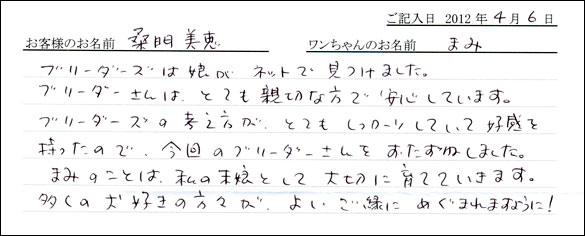 ご記入日 2012年4月6日
お客様のお名前 桑門美恵 ワンちゃんのお名前 まみ
ブリーダーズは娘がネットで見つけました。
ブリーダーさんは、とても親切な方で安心しています。
ブリーダーズの考え方が、とてもしっかりしていて好感を
持ったので、今回のブリーダーさんをおたずねしました。
まみのことは、私の末娘として大切に育てていきます。
多くの犬好きの方々が、よいご縁にめぐまれますように!